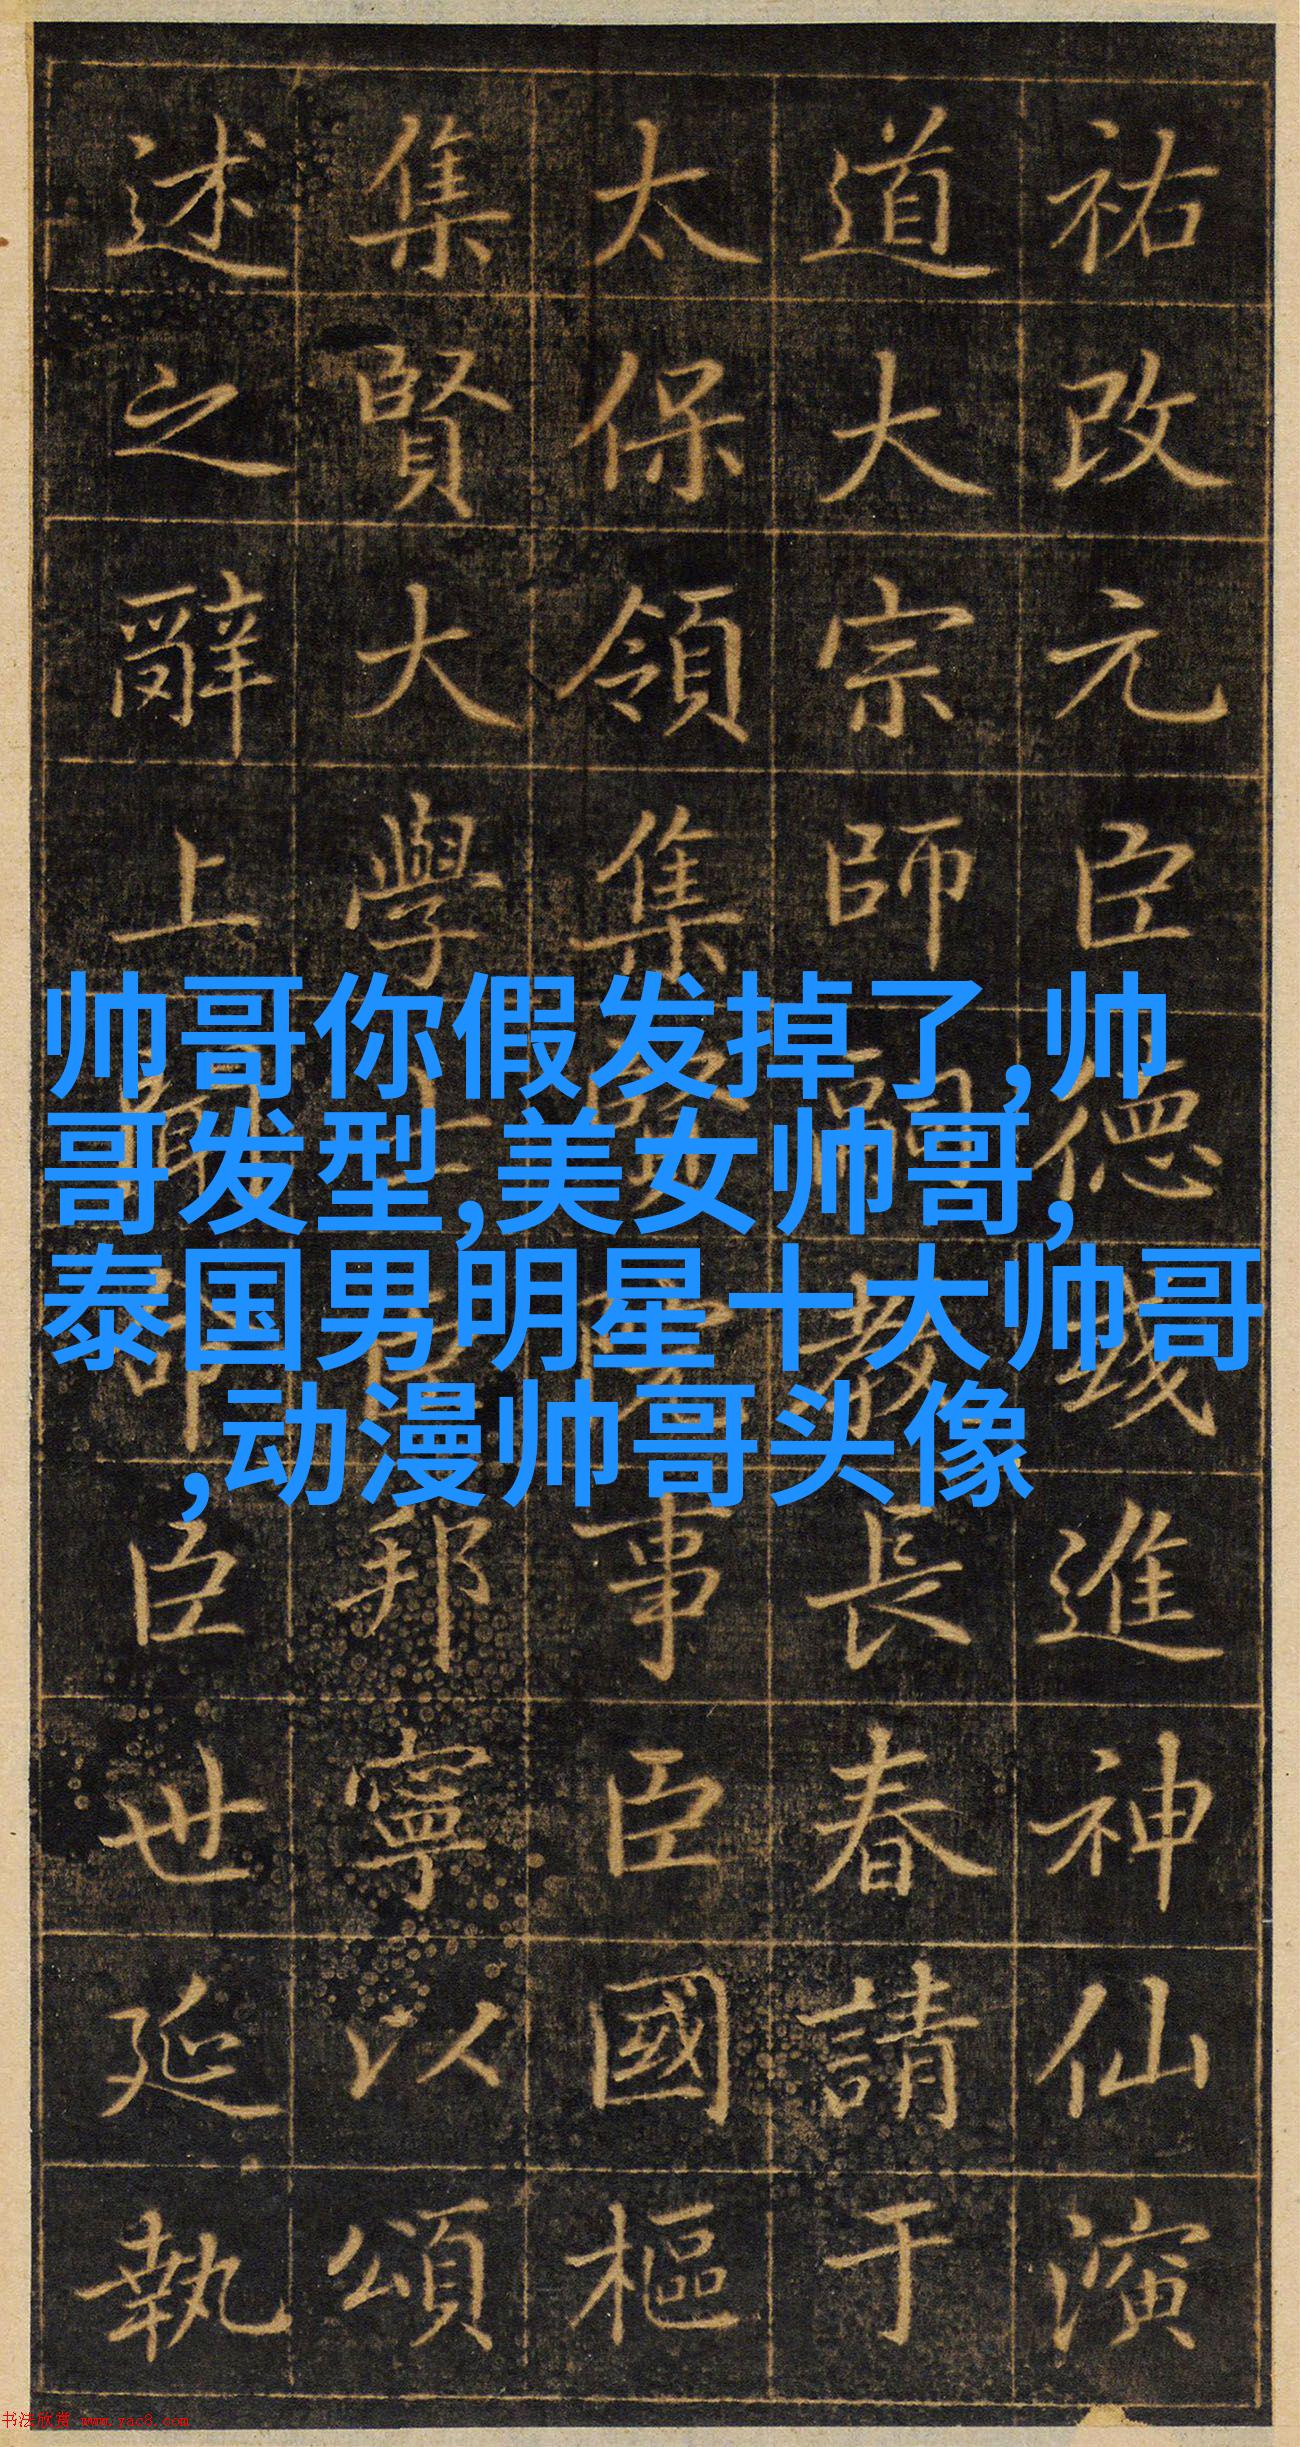 祐改元臣德彧進神仙演
道大宗師嗣教長春請于
太保領集賢院事臣國樞
集賢大學士臣邦寧以頌
述之辭上聞臣世延執
帅哥你假发掉了,帅
哥发型,美女帅哥,
泰国男明星十大帅哥
,动漫帅哥头像
书法欣赏 www.yac8.com